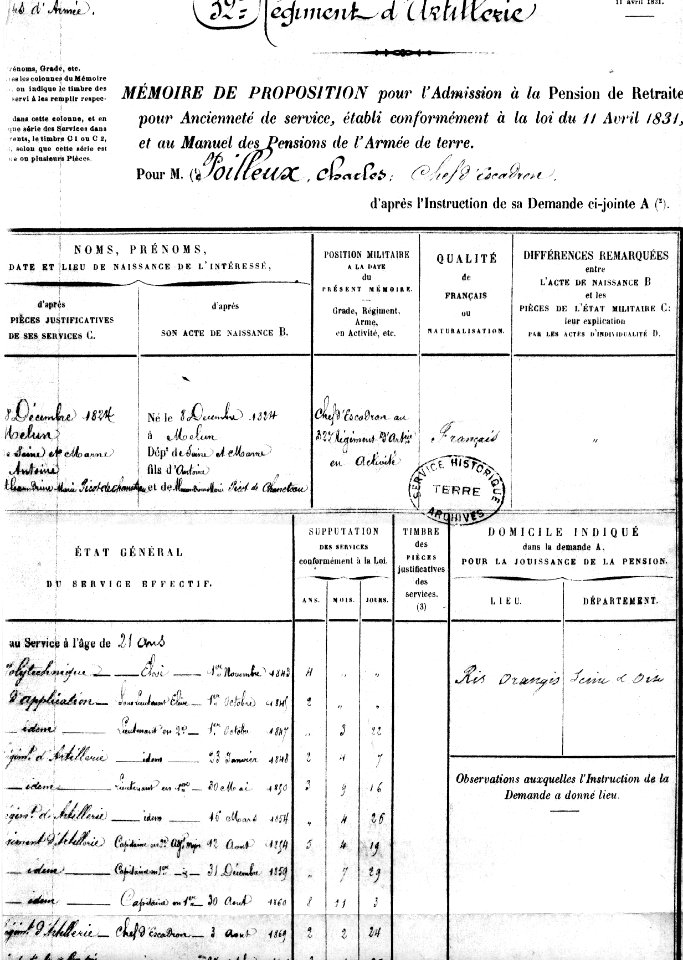 d'Armée.
32e Régiment d'Artillerie
11 avril 1831.
rénoms, Grade, etc.
les colonnes du Mémoire
on indique le timbre des
servi à les remplir respec-
dans cette colonne, et en
que série des Services dans
le timbre C 1 ou C 2,
selon que cette série est
ou plusieurs Pièces.
MÉMOIRE DE PROPOSITION pour l'Admission à la Pension de Retraite
pour Ancienneté de service, établi conformément à la loi du 11 Avril 1831,
et au Manuel des Pensions de l'Armée de terre.
Pour M. (1) Poilleux, Charles, Chef d'escadron.
d'après l'Instruction de sa Demande ci-jointe A (2).
NOMS, PRÉNOMS,
DATE ET LIEU DE NAISSANCE DE L'INTÉRESSÉ,
d'après
PIÈCES JUSTIFICATIVES
DE SES SERVICES C.
d'après
SON ACTE DE NAISSANCE B.
POSITION MILITAIRE
A LA DATE
du
PRÉSENT MÉMOIRE.
Grade, Régiment.
Arme,
en Activité, etc.
QUALITÉ
de
FRANÇAIS
ou
NATURALISATION.
DIFFÉRENCES REMARQUÉES
entre
L'ACTE DE NAISSANCE B
et les
PIÈCES DE L'ÉTAT MILITAIRE C:
leur explication
PAR LES ACTES D'INDIVIDUALITÉ D.
8 Décembre 1824
Melun
Seine et Marne
Antoine
Picot de
Né le 8 Décembre 1824
à Melun
Dépt de Seine et Marne
fils d'Antoine
et de Picot de
Chef d'Escadron au
32e Régiment d'Artie
en Activité
Français
"
SERVICE HISTORIQUE
TERRE
ARCHIVES
ÉTAT GÉNÉRAL
DU SERVICE EFFECTIF.
SUPPUTATION
DES SERVICES
conformément à la Loi.
ANS. MOIS. JOURS.
TIMBRE
des
PIÈCES
justificatives
des
services.
(3)
DOMICILE INDIQUÉ
dans la demande A,
POUR LA JOUISSANCE DE LA PENSION.
LIEU. DÉPARTEMENT.
Ris Orangis Seine et Oise
Observations auxquelles l'Instruction de la
Demande a donné lieu.
au Service à l'âge de 21 ans
Polytechnique — Élève — 1er Novembre 1843 4 " "
d'application — Sous Lieutenant Élève — 1er Octobre 2 " "
— idem — Lieutenant en 2d — 1er Octobre 1847 " 3 22
d'Artillerie — idem — 23 Janvier 1848 2 4 7
— idem — Lieutenant en 1er — 30 Mai 1850 3 9 16
d'Artillerie — idem — 16 Mars 1854 " 4 26
d'Artillerie Capitaine en 2d Adjt Major 12 Aout 1854 5 4 19
— idem — Capitaine en — 31 Décembre 1859 " 7 29
— idem — Capitaine en 1er — 30 Aout 1860 8 11 3
d'Artillerie — Chef d'Escadron — 3 Aout 1869 2 2 24